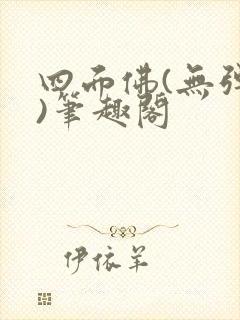 四而佛(無彈
)筆趣閣
伊依羊